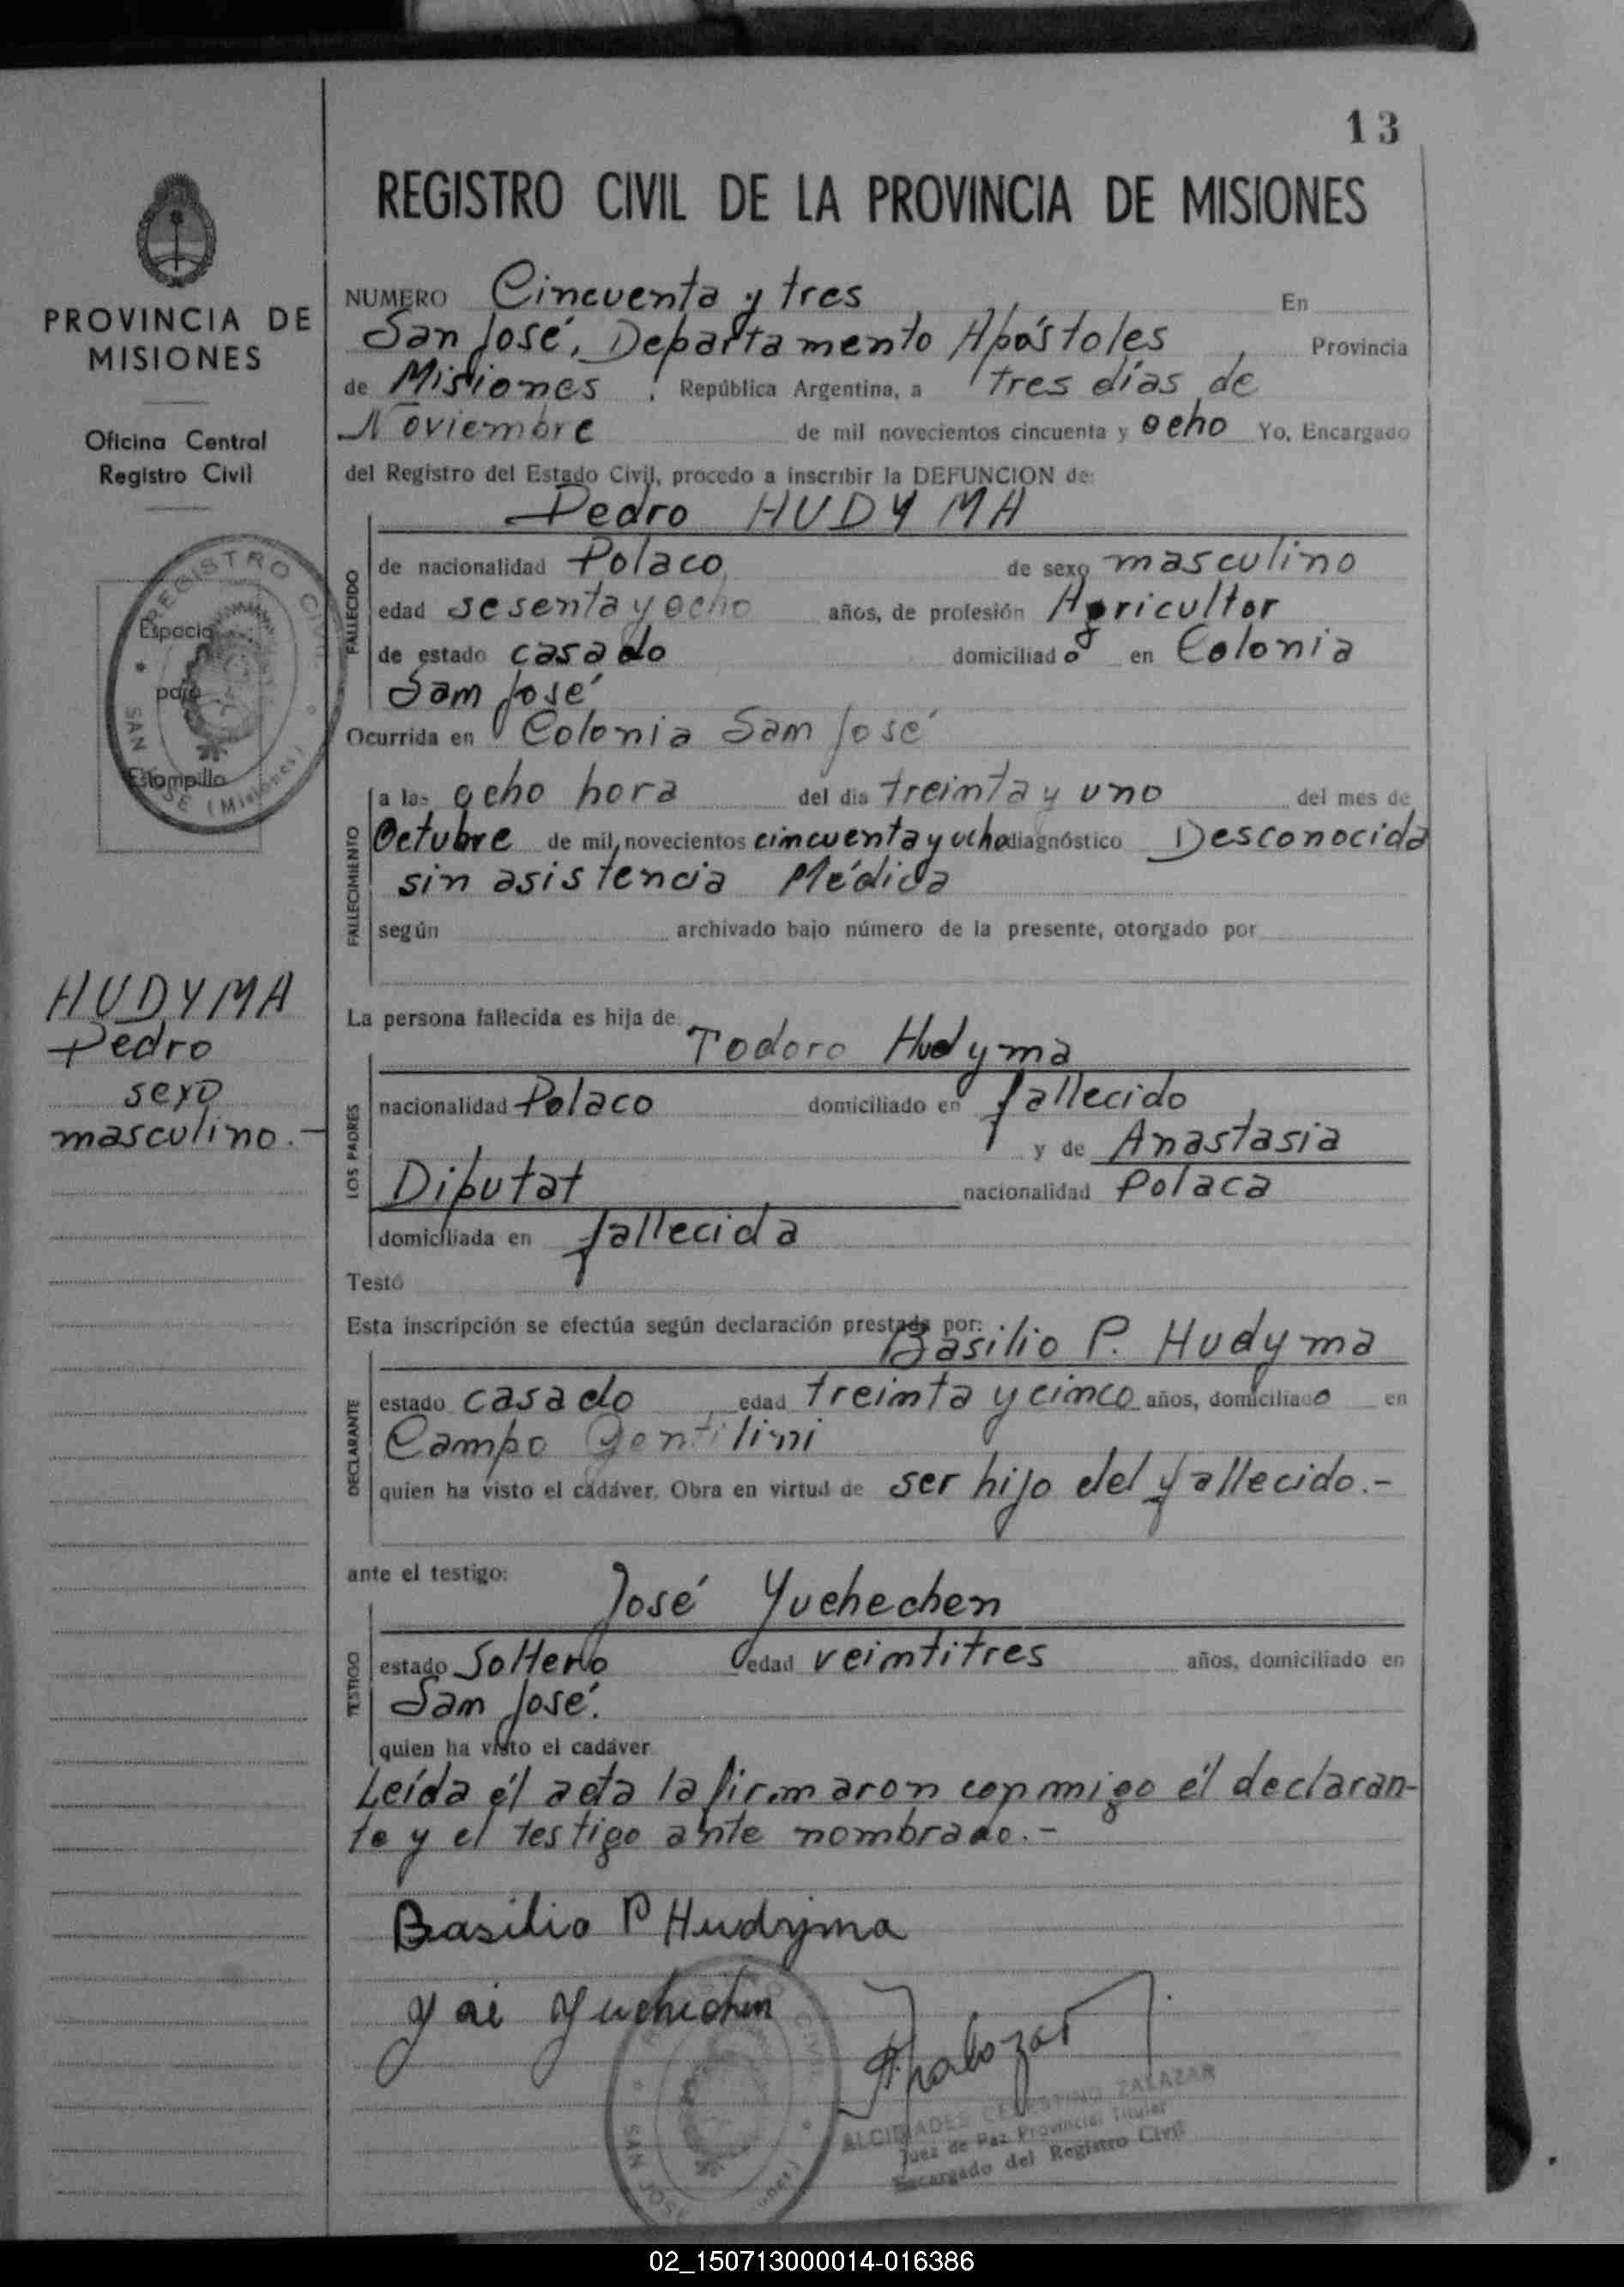 13
REGISTRO CIVIL DE LA PROVINCIA DE MISIONES
PROVINCIA DE
MISIONES
Oficina Central
Registro Civil
REGISTRO CIVIL
SAN JOSE (Misiones)
Espacio
para
Estampilla
HUDYMA
Pedro
sexo
masculino.-
NUMERO Cincuenta y tres En
San José, Departamento Apóstoles, Provincia
de Misiones, República Argentina, a tres días de
Noviembre de mil novecientos cincuenta y ocho Yo, Encargado
del Registro del Estado Civil, procedo a inscribir la DEFUNCION de:
Pedro HUDYMA
FALLECIDO
de nacionalidad Polaco de sexo masculino
edad sesenta y ocho años, de profesión Agricultor
de estado casado domiciliado en Colonia
San José
Ocurrida en Colonia San José
FALLECIMIENTO
a las ocho hora del dia treinta y uno del mes de
Octubre de mil novecientos cincuenta y ocho diagnóstico Desconocida
sin asistencia Médica
según archivado bajo número de la presente, otorgado por
La persona fallecida es hija de
Todoro Hudyma
LOS PADRES
nacionalidad Polaco domiciliado en fallecido
y de Anastasia
Diputat nacionalidad Polaca
domiciliada en fallecida
Testó
Esta inscripción se efectúa según declaración prestada por:
Basilio P. Hudyma
DECLARANTE
estado casado edad treinta y cinco años, domiciliado en
Campo Gentilini
quien ha visto el cadáver. Obra en virtud de ser hijo del fallecido.-
ante el testigo:
José Yuchechen
TESTIGO
estado Soltero edad veintitres años, domiciliado en
San José.
quien ha visto el cadáver
Leída él acta la firmaron conmigo él declaran-
te y el testigo ante nombrado.-
Basilio P Hudyma
Yuchechen
SAN JOSE
ALCIBIADES CELESTINO ZALAZAR
Juez de Paz Provincial Titular
Encargado del Registro Civil
02_150713000014-016386